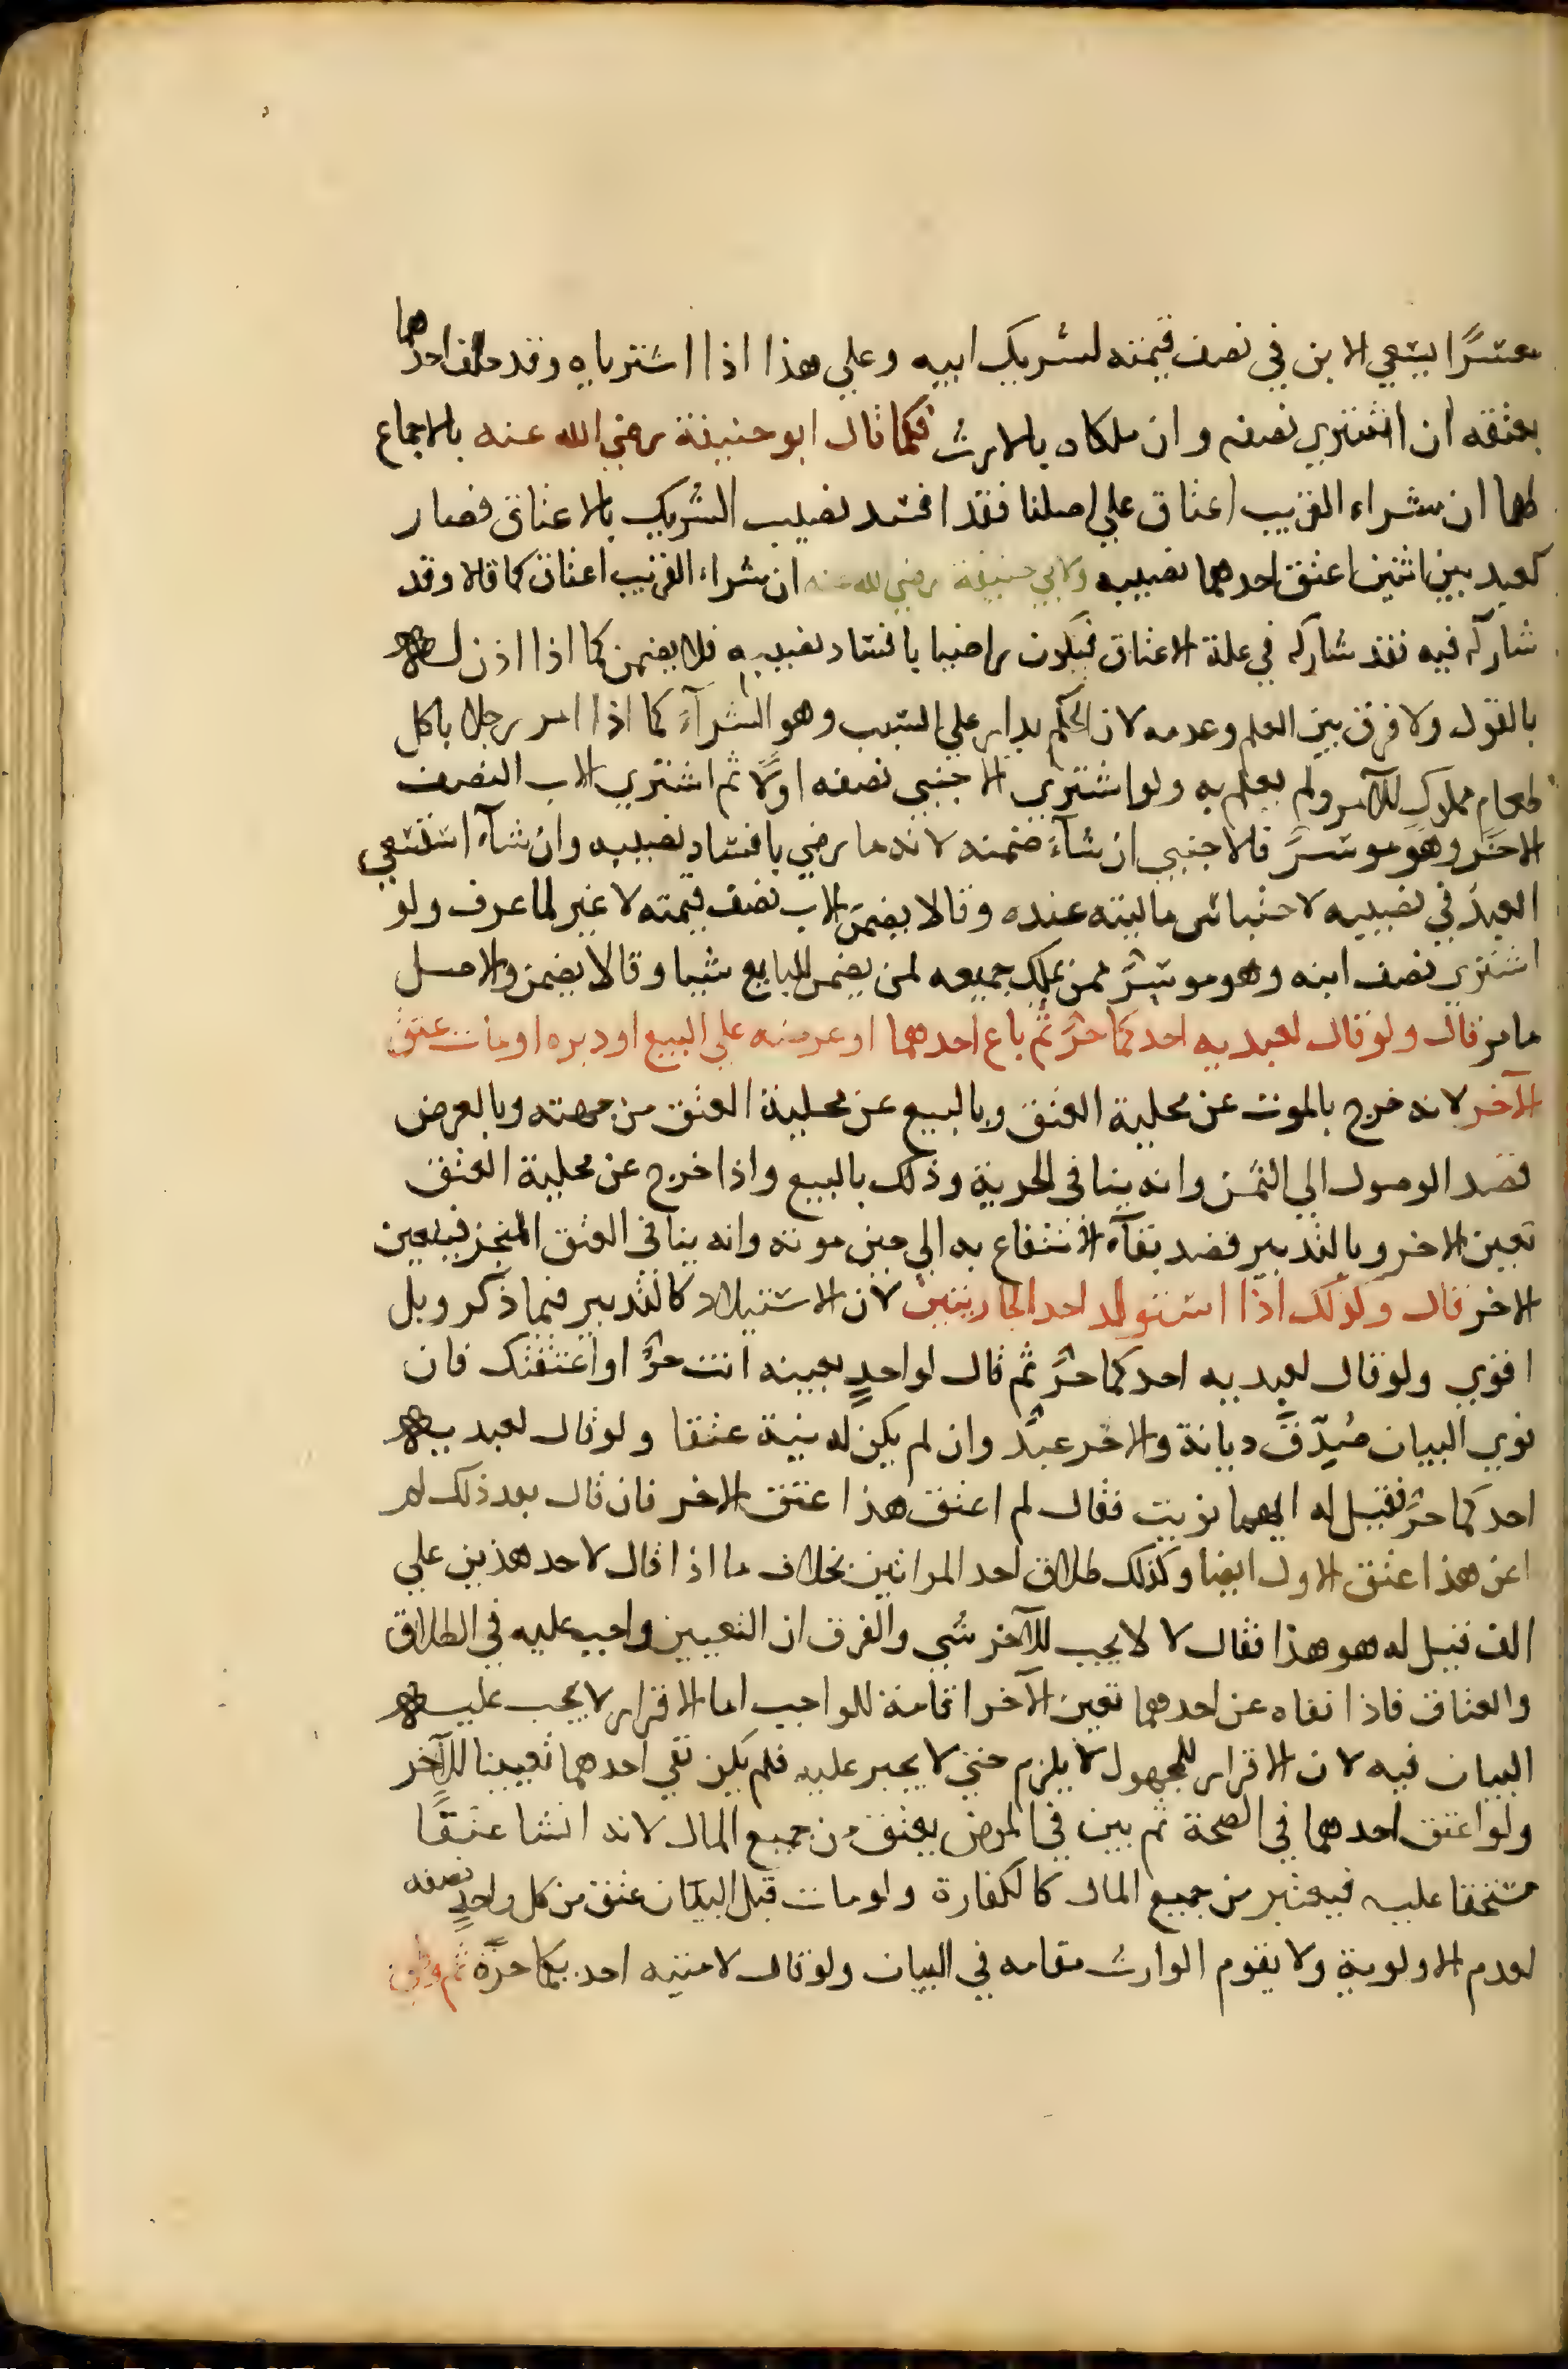 معسرًا يسعي الابن في نصف قيمته لشريك ابيه وعلي هذا اذا اشترياه وقد حلف احدهما
بعتقه ان اشتري نصفه وان ملكاه بالارث فكما قال ابو حنيفة رضي الله عنه بالاجماع
لهما ان شراء القريب اعتاق علي اصلنا فقد افسد نصيب الشريك بالاعتاق فصار
كعبد بين اثنين اعتق احدهما نصيبه ولابي حنيفة رضي الله عنه ان شراء القريب اعتاق كما قالا وقد
شاركه فيه فقد شاركه في علة الاعتاق فيكون راضيا بافساد نصيبه فلا يضمن كما اذا اذن له
بالقول ولا فرق بين العلم وعدمه لان الحكم يدار علي السبب وهو الشرآء كما اذا امر رجلا باكل
طعام مملوك للآمر ولم يعلم به ولو اشتري الاجنبي نصفه اولًا ثم اشتري الاب النصف
الاخر وهو موسرٌ فالاجنبي ان شآء ضمنه لانه ما رضي بافساد نصيبه وان شآء استسعي
العبد في نصيبه لاحتباس ماليته عنده وقالا يضمن الاب نصف قيمته لا غير لما عرف ولو
اشتري نصف ابنه وهو موسرٌ ممن يملك جميعه لم يضمن للبايع شيا وقالا يضمن والاصل
ما مر قال ولو قال لعبديه احدكما حرٌ ثم باع احدهما او عرضه علي البيع او دبره او مات عتق
الآخر لانه خرج بالموت عن محلية العتق وبالبيع عن محلية العتق من جهته وبالعرض
قصد الوصول الي الثمن وانه ينافي الحرية وذلك بالبيع واذا خرج عن محلية العتق
تعين الاخر وبالتدبير قصد بقآء الانتفاع به الي حين موته وانه ينافي العتق المنجز فيتعين
الاخر قال وكذلك اذا استولد احد الجاريتين لان الاستيلاد كالتدبير فيما ذكر وبل
اقوي ولو قال لعبديه احدكما حرٌ ثم قال لواحدٍ بعينه انت حرٌ او اعتقتك فان
نوي البيان صُدِّق ديانة والاخر عبدٌ وان لم يكن له نية عتقا ولو قال لعبديه
احدكما حرٌ فقيل له ايهما نويت فقال لم اعتق هذا عتق الاخر فان قال بعد ذلك لم
اعن هذا عتق الاول ايضا وكذلك طلاق احد المراتين بخلاف ما اذا قال لاحد هذين علي
الف فقيل له هو هذا فقال لا لا يجب للآخر شي والفرق ان التعيين واجب عليه في الطلاق
والعتاق فاذا نفاه عن احدهما تعين الآخر اقامة للواجب اما الاقرار لا يجب عليه
البيان فيه لان الاقرار للمجهول لا يلزم حتي لا يجبر عليه فلم يكن نفي احدهما تعيينا للآخر
ولو اعتق احدهما في الصحة ثم بين في المرض يعتق من جميع المال لانه انشا عتقًا
مستحقا عليه فيعتبر من جميع المال كالكفارة ولو مات قبل البيان عتق من كل واحدٍ نصفه
لعدم الاولوية ولا يقوم الوارث مقامه في البيان ولو قال لامتيه احديكما حرّة ثم وطئ